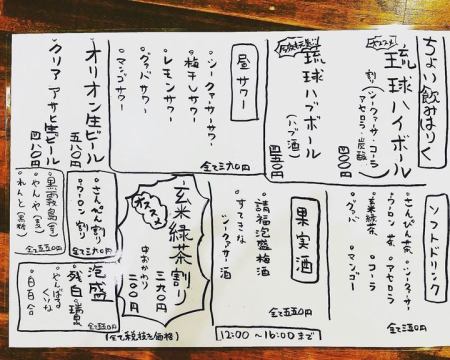 ちょい飲みはりく
オススメ
琉球ハイボール
割り(シークァーサー・コーラ
アセロラ・炭酸)
四〇〇
琉球ハブボール
(ハブ酒)
四五〇
昼サワー
・シークァーサーサワー
・梅干しサワー
・レモンサワー
・グァバサワー
・マンゴサワー
全て三九〇円
オリオン生ビール
五八〇円
クリアアサヒ生ビール
四八〇円
ソフトドリンク
・さんぴん茶
・シークァーサー
・ウーロン茶
・アセロラ
・玄米緑茶
・コーラ
・グァバ
・マンゴー
全て三五〇円
果実酒
・請福泡盛梅酒
・すてきなシークァーサー酒
全て五五〇円
オススメ
玄米緑茶割り
三九〇円
中おかわり
二〇〇円
・さんぴん割り
・ウーロン割り
全て三九〇円
・黒霧島(芋)
・やんや(麦)
・れんと(黒糖)
全て五五〇円
泡盛
・残白
・瑞泉
・やんばるくいな
・白百合
全て五〇〇円
(全て税抜き価格)
12:00〜16:00まで